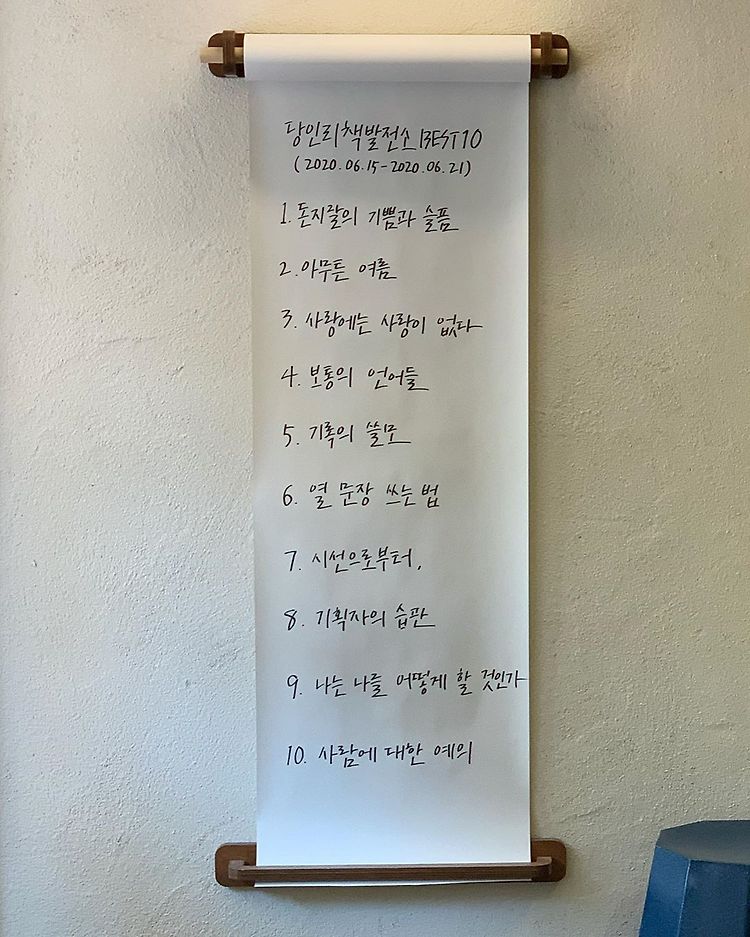 당인리책발전소 BEST10
(2020.06.15-2020.06.21)
1. 돈지랄의 기쁨과 슬픔
2. 아무튼 여름
3. 사랑에는 사랑이 없다
4. 보통의 언어들
5. 기록의 쓸모
6. 열 문장 쓰는 법
7. 시선으로부터,
8. 기획자의 습관
9. 나는 나를 어떻게 할 것인가
10. 사람에 대한 예의